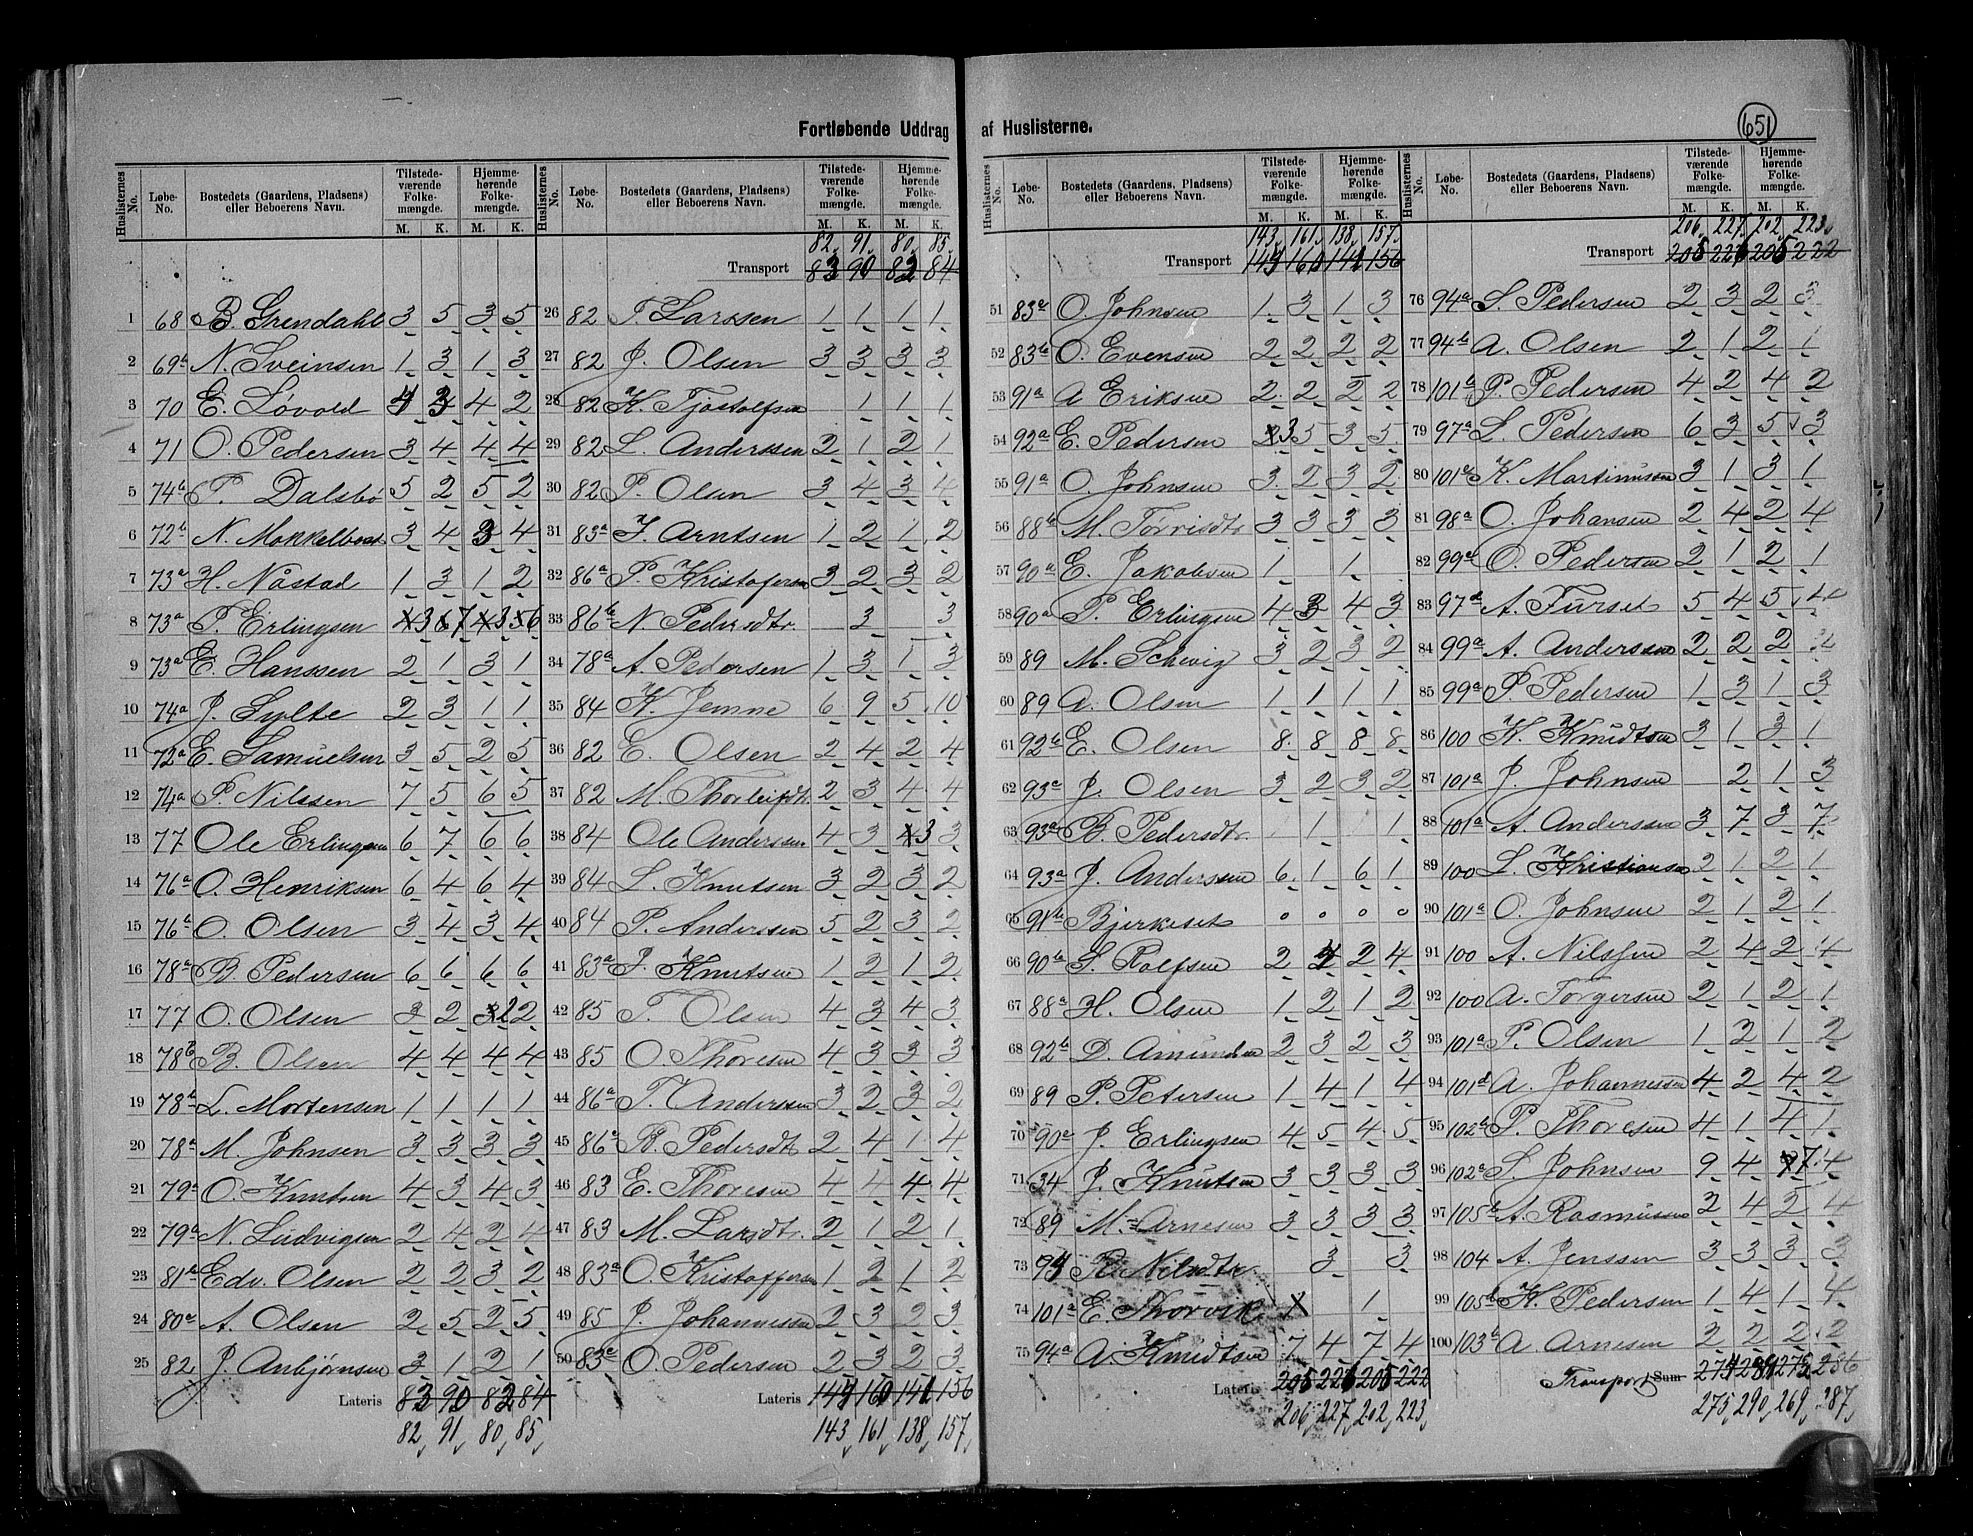 Fortløbende Uddrag af Huslisterne.
651
Huslisternes No. Løbe-No. Bostedets (Gaardens, Pladsens) eller Beboerens Navn. Tilstedeværende Folkemængde. M. K. Hjemmehørende Folkemængde. M. K.
1 68 B. Grendahl 3 5 3 5
2 69b N. Sveinsen 1 3 1 3
3 70 E. Løvold 4 3 4 2
4 71 O. Pedersen 3 4 4 4
5 74b P. Dalsbø 5 2 5 2
6 72b N. Mokkelbost 3 4 3 4
7 73a H. Nåstad 1 3 1 2
8 73a P. Erlingsen 3 7 3 6
9 73a E. Hanssen 2 1 3 1
10 74a J. Sylte 2 3 1 1
11 72a E. Samuelsen 3 5 2 5
12 74a P. Nilssen 7 5 6 5
13 77 Ole Erlingsen 6 7 6 6
14 76a O. Henriksen 6 4 6 4
15 76a O. Olsen 3 4 3 4
16 78a B. Pedersen 6 6 6 6
17 77 O. Olsen 3 2 2 2
18 78b B. Olsen 4 4 4 4
19 78b L. Mortensen 1 1 1 1
20 78a M. Johnsen 3 3 3 3
21 79a O. Knutsen 4 3 4 3
22 79a N. Ludvigsen 2 4 2 4
23 81a Edv. Olsen 2 2 3 2
24 80a A. Olsen 2 5 2 5
25 82 J. Anbjønsen 3 1 2 1
Lateris 83 90 82 84
82 91 80 85
Huslisternes No. Løbe-No. Bostedets (Gaardens, Pladsens) eller Beboerens Navn. Tilstedeværende Folkemængde. M. K. Hjemmehørende Folkemængde. M. K.
82 91 80 85
Transport 83 90 82 84
26 82 T. Larssen 1 1 1 1
27 82 J. Olsen 3 3 3 3
28 82 K. Tjøstolfsen 1 1 1
29 82 L. Anderssen 2 1 2 1
30 82 P. Olsen 3 4 3 4
31 83a I. Arntsen 1 2 1 2
32 86a P. Kristofersen 3 2 3 2
33 86b N. Pedersdtr. 3 3
34 78a A. Pedersen 1 3 1 3
35 84 K. Jemne 6 9 5 10
36 82 E. Olsen 2 4 2 4
37 82 M. Thorleifdtr. 2 3 4 4
38 84 Ole Anderssen 4 3 3 3
39 84 L. Knutsen 3 2 3 2
40 84 P. Anderssen 5 2 3 2
41 83a J. Knutsen 1 2 1 2
42 85 T. Olsen 4 3 4 3
43 85 O. Thoresen 4 3 3 3
44 86a T. Anderssen 3 2 3 2
45 86a R. Pedersdtr 2 4 1 4
46 83 E. Thoresen 4 4 4 4
47 83 M. Larsdtr. 2 1 2 1
48 83a O. Kristoffersen 1 2 1 2
49 85 J. Johannessen 2 3 2 3
50 83c O. Pedersen 2 3 2 3
Lateris 144 160 141 156
143 161 138 157
Huslisternes No. Løbe-No. Bostedets (Gaardens, Pladsens) eller Beboerens Navn. Tilstedeværende Folkemængde. M. K. Hjemmehørende Folkemængde. M. K.
143 161 138 157
Transport 144 160 141 156
51 83a O. Johnsen 1 3 1 3
52 83b O. Evensen 2 2 2 2
53 91a A Eriksen 2 2 2 2
54 92a E. Pedersen 3 5 3 5
55 91a O. Johnsen 3 2 3 2
56 88b M. Torrisdtr 3 3 3 3
57 90a E. Jakobsen 1 1
58 90a P. Erlingsen 4 3 4 3
59 89 M. Schevig 3 2 3 2
60 89 A. Olsen 1 1 1 1
61 92b E. Olsen 8 8 8 8
62 93a J. Olsen 3 2 3 2
63 93a B. Pedersdtr. 1 1
64 93a J. Anderssen 6 1 6 1
65 91b Bjerkeset 0 0 0 0
66 90b S. Rolfsen 2 4 2 4
67 88a H. Olsen 1 2 1 2
68 92b D. Amundsen 2 3 2 3
69 89 P. Petersen 1 4 1 4
70 90a J. Erlingsen 4 5 4 5
71 34 J. Knutsen 3 3 3 3
72 89 M. Arnesen 3 3 3 3
73 94 R. Nilsdtr 3 3
74 101a E. Thorvik 1
75 94a A. Knudtsen 7 4 7 4
Lateris 205 226 205 222
206 227 202 223
Huslisternes No. Løbe-No. Bostedets (Gaardens, Pladsens) eller Beboerens Navn. Tilstedeværende Folkemængde. M. K. Hjemmehørende Folkemængde. M. K.
206 227 202 223
Transport 205 226 205 222
76 94a S. Pedersen 2 3 2 3
77 94b A. Olsen 2 1 2 1
78 101b P. Pedersen 4 2 4 2
79 97a L. Pedersen 6 3 5 3
80 101c K. Martinussen 3 1 3 1
81 98a O. Johansen 2 4 2 4
82 99a O. Pedersen 2 1 2 1
83 97d A. Furset 5 4 5 4
84 99a A. Anderssen 2 2 2
85 99a P. Pedersen 1 3 1 3
86 100 K. Knudtsen 3 1 3 1
87 101a J. Johnsen 2 1 3
88 101a A. Anderssen 3 7 3 7
89 100 L. Kristiansen 2 1 2 1
90 101a O. Johnsen 2 1 2 1
91 100 A. Nilssen 2 4 2 4
92 100 A. Torgersen 2 1 2 1
93 101a P. Olsen 1 2 1 2
94 101d A. Johannessen 4 2 4 2
95 102b P. Thoresen 4 1 4 1
96 102a S. Johnsen 9 4 7 4
97 105b A. Rasmussen 2 4 2 4
98 104 A. Jenssen 3 3 3 3
99 105b K. Pedersen 1 4 1 4
100 103b A. Arnesen 2 2 2 2
Transport Sum 274 289 275 286
275 290 269 287